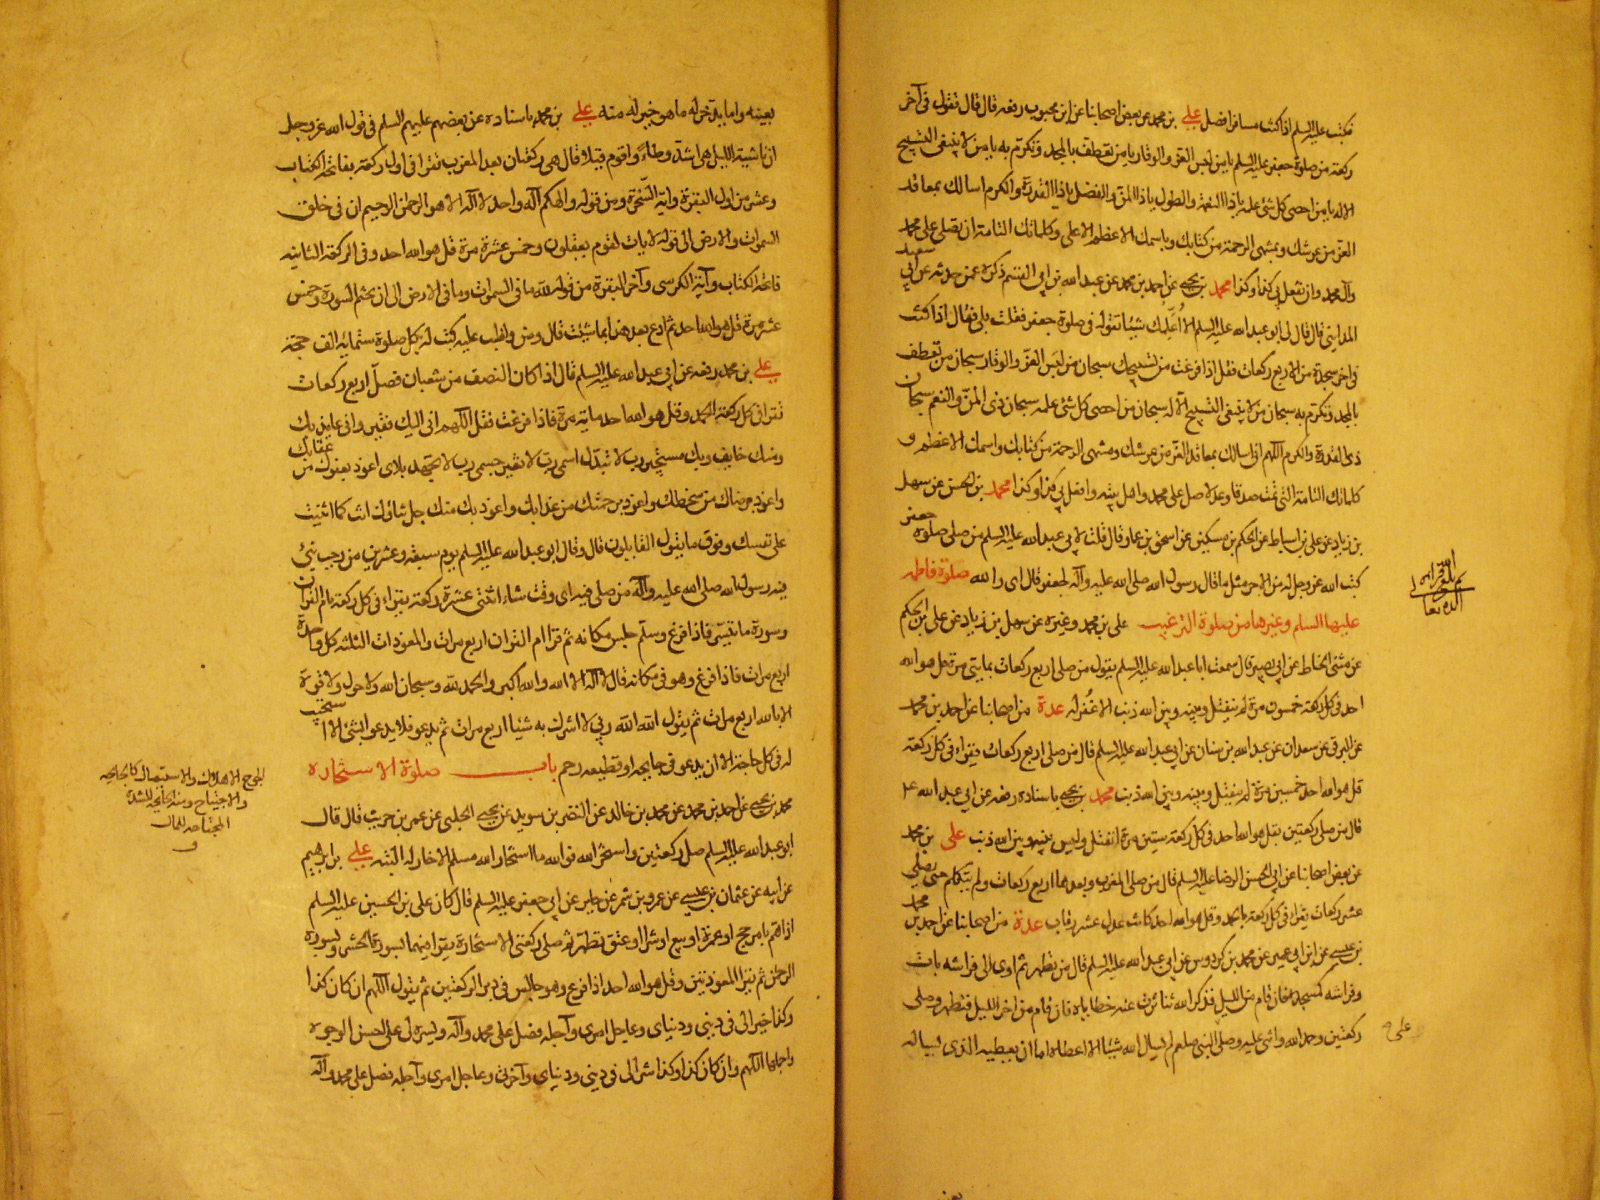 فكتب عليه السلم اذا كنت مسافرا فصل علي بن محمد عن بعض اصحابنا عن ابن محبوب رفعه قال قال تقول في آخر
ركعة من صلوة جعفر عليه السلم يا من لبس العز والوقار يا من تعطف بالمجد وتكرم به يا من لا ينبغي التسبيح
الا له يا من احصى كل شئ علمه يا ذا النعمة والطول يا ذا المن والفضل يا ذا القدرة والكرم اسالك بمعاقد
العز من عرشك ومنتهى الرحمة من كتابك وباسمك الاعظم الاعلى وكلماتك التامة ان تصلي على محمد
وآل محمد وان تفعل بي كذا وكذا محمد بن يحيى عن احمد بن محمد عن عبد الله بن ابي القسم ذكره عمن حدثه عن ابي سعيد
المدايني قال قال لي ابو عبد الله عليه السلم الا اُعلّمك شيئا تقوله في صلوة جعفر فقلت بلى فقال اذا كنت
في اخر سجدة من الاربع ركعات فقل اذا فرغت من تسبيحك سبحان من لبس العز والوقار سبحان من تعطف
بالمجد وتكرم به سبحان من لا ينبغي التسبيح الا له سبحان من احصى كل شئ علمه سبحان ذي المن والنعم سبحان
ذي القدرة والكرم اللهم اني اسالك بمعاقد العز من عرشك ومنتهى الرحمة من كتابك واسمك الاعظم و
كلماتك التامة التي تمت صدقا وعدلا صل على محمد واهل بيته وافعل بي كذا وكذا محمد بن الحسن عن سهل
بن زياد عن علي بن اسباط عن الحكم بن مسكين عن اسحق بن عمار قال قلت لابي عبد الله عليه السلم من صلى صلوة جعفر
كتب الله عز وجل له من الاجر مثل ما قال رسول الله صلى الله عليه وآله لجعفر قال اي والله صلوة فاطمة
عليها السلم وغيرها من صلوة الترغيب علي بن محمد وغيره عن سهل بن زياد عن علي بن الحكم
عن مثنى الحناط عن ابي بصير قال سمعت ابا عبد الله عليه السلم يقول من صلى اربع ركعات بمايتي مرة قل هو الله
احد في كل ركعة خمسون مرة لم ينفتل وبينه وبين الله ذنب الا غُفر له عدة من اصحابنا عن احمد بن محمد
عن البرقي عن سعدان عن عبد الله بن سنان عن ابي عبد الله عليه السلم قال من صلى اربع ركعات يقراء في كل ركعة
قل هو الله احد خمسين مرة لم ينفتل وبينه وبين الله ذنب محمد بن يحيى باسناده رفعه عن ابي عبد الله ع
قال من صلى ركعتين بقل هو الله احد في كل ركعة ستين مرة انفتل وليس بينه وبين الله ذنب علي بن محمد
عن بعض اصحابنا عن ابي الحسن الرضا عليه السلم قال من صلى المغرب وبعدها اربع ركعات ولم يتكلم حتى يصلي
عشر ركعات يقراء في كل ركعة بالحمد وقل هو الله احد كانت عدل عشر رقاب عدة من اصحابنا عن احمد بن محمد
بن عيسى عن ابن ابي عمير عن محمد بن كردوس عن ابي عبد الله عليه السلم قال من تطهر ثم اوى الى فراشه بات
وفراشه كمسجده فان قام من الليل فذكر الله تناثرت عنه خطاياه فان قام من اخر الليل فتطهر وصلى
ركعتين وحمد الله واثنى عليه وصلى على النبي صلعم لم يسال الله شيئا الا اعطاه اما ان يعطيه الذي يساله
بعينه واما يدخر له ما هو خير له منه علي بن محمد باسناده عن بعضهم عليهم السلم في قول الله عز وجل
ان ناشئة الليل هي اشد وطاء واقوم قيلا قال هي ركعتان بعد المغرب تقرا في اول ركعة بفاتحة الكتاب
وعشر من اول البقرة واية السخرة ومن قوله والهكم اله واحد لا اله الا هو الرحمن الرحيم ان في خلق
السموات والارض الى قوله لايات لقوم يعقلون وخمس عشرة مرة قل هو الله احد وفي الركعة الثانية
فاتحة الكتاب وآية الكرسي وآخر البقرة من قوله لله ما في السموات وما في الارض الى ان يختم السورة وخمس
عشر مرة قل هو الله احد ثم ادع بعد هذا بما شئت قال ومن واظب عليه كتب له بكل صلوة ستماية الف حجة
علي بن محمد رفعه عن ابي عبد الله عليه السلم قال اذا كان النصف من شعبان فصلّ اربع ركعات
تقرا في كل ركعة الحمد وقل هو الله احد ماية مرة فاذا فرغت فقل اللهم اني اليك فقير واني عايذ بك
ومنك خايف وبك مستجير رب لا تبدل اسمي رب لا تغير جسمي رب لا تجهد بلاي اعوذ بعفوك من عقابك
واعوذ برضاك من سخطك واعوذ برحمتك من عذابك واعوذ بك منك جل ثناؤك انت كما اثنيت
على نفسك وفوق ما يقول القايلون قال وقال ابو عبد الله عليه السلم يوم سبعة وعشرين من رجب نبئ
فيه رسول الله صلى الله عليه وآله من صلى فيه اي وقت شاء اثنتي عشرة ركعة يقراء في كل ركعة بام القران
وسورة ما تيسر فاذا فرغ وسلم جلس مكانه ثم قرا ام القران اربع مرات والمعوذات الثلثة كل واحدة
اربع مرات فاذا فرغ وهو في مكانه قال لا اله الا الله والله اكبر والحمد لله وسبحان الله ولا حول ولا قوة
الا بالله اربع مرات ثم يقول الله الله ربي لا اشرك به شيئا اربع مرات ثم يدعو فلا يدعو بشئ الا استجيب
له في كل حاجة الا ان يدعو في جايحة او قطيعة رحم باب صلوة الاستخارة
محمد بن يحيى عن احمد بن محمد عن محمد بن خالد عن النضر بن سويد عن يحيى الحلبي عن عمر بن حريث قال قال
ابو عبد الله عليه السلم صل ركعتين واستخر الله فوالله ما استخار الله مسلم الا خار له البتة علي بن ابراهيم
عن ابيه عن عثمان بن عيسى عن عمرو بن شمر عن جابر عن ابي جعفر عليه السلم قال كان علي بن الحسين عليه السلم
اذا هم بامر حج او عمرة او بيع او شرا او عتق تطهر ثم صلى ركعتي الاستخارة يقرا فيهما بسورة الحشر وبسورة
الرحمن ثم يقرا المعوذتين وقل هو الله احد اذا فرغ وهو جالس في دبر الركعتين ثم يقول اللهم ان كان كذا
وكذا خيرا لي في ديني ودنياي وعاجل امري وآجله فصل على محمد وآله ويسره لي على احسن الوجوه
واجملها اللهم وان كان كذا وكذا شرا لي في ديني ودنياي وآخرتي وعاجل امري وآجله فصل على محمد وآله
الجوح الاهلاك والاستيصال كالجايحة
والاجتياح ومنه الجايحة للشدة
المجتاحة للمال